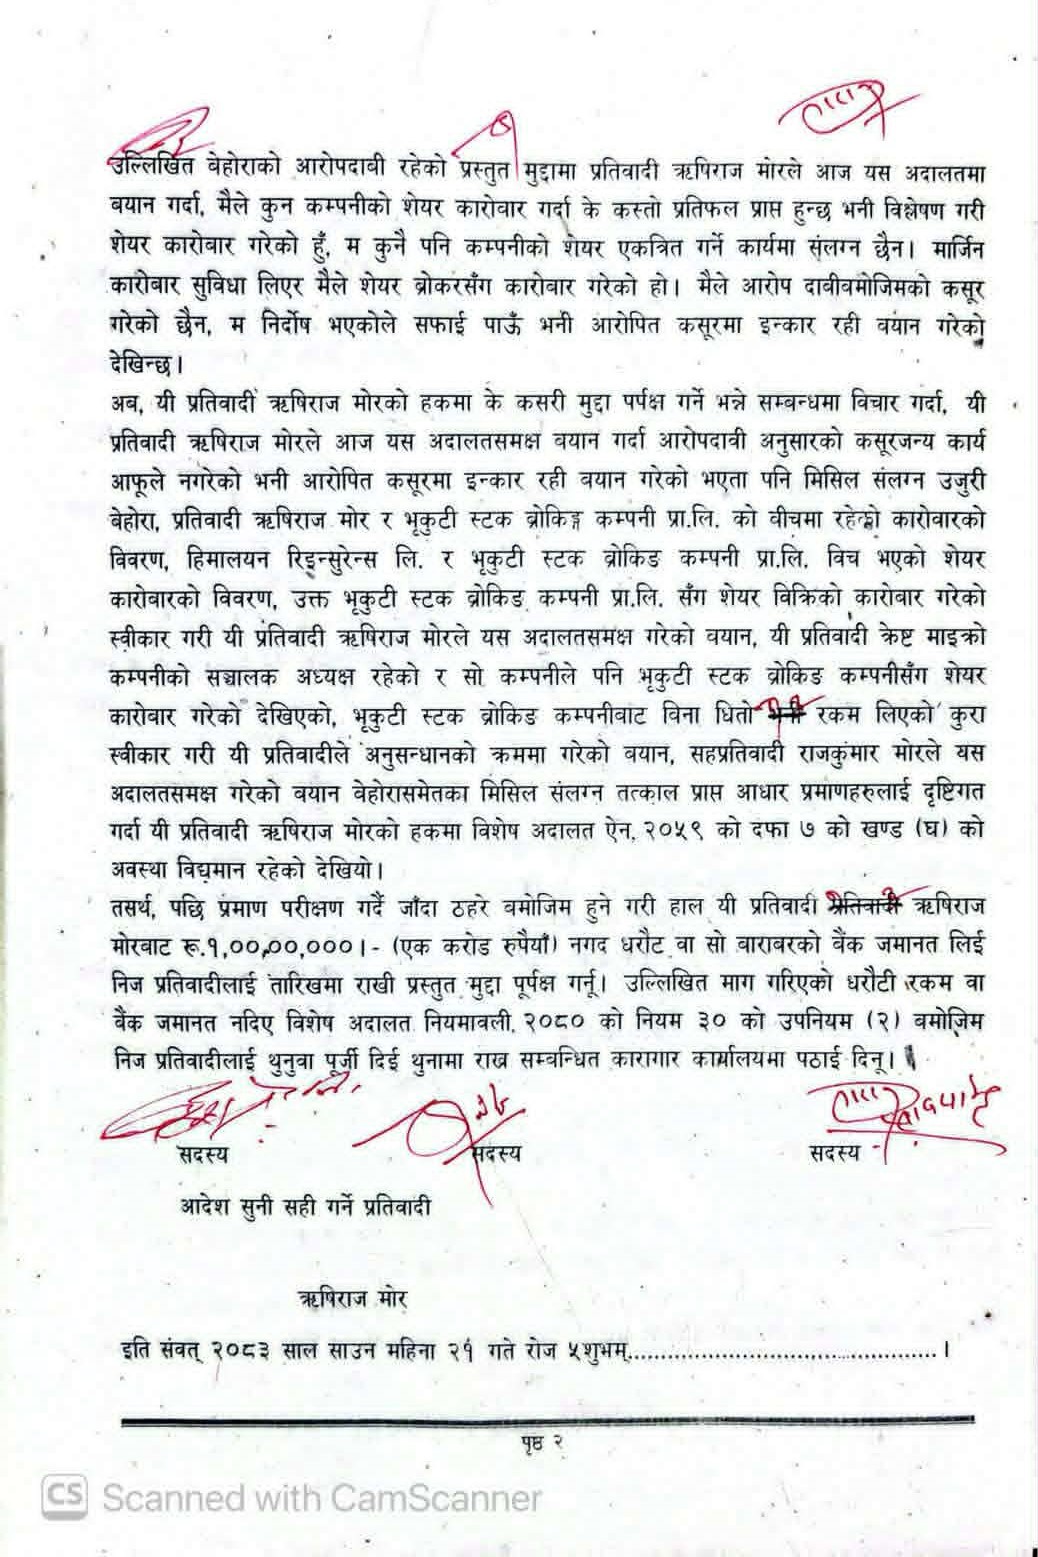 उल्लिखित बेहोराको आरोपदाबी रहेको प्रस्तुत मुद्दामा प्रतिवादी ऋषिराज मोरले आज यस अदालतमा
बयान गर्दा, मैले कुन कम्पनीको शेयर कारोबार गर्दा के कस्तो प्रतिफल प्राप्त हुन्छ भनी विश्लेषण गरी
शेयर कारोबार गरेको हुँ, म कुनै पनि कम्पनीको शेयर एकत्रित गर्ने कार्यमा संलग्न छैन। मार्जिन
कारोबार सुविधा लिएर मैले शेयर ब्रोकरसँग कारोबार गरेको हो। मैले आरोप दावीबमोजिमको कसूर
गरेको छैन, म निर्दोष भएकोले सफाई पाऊँ भनी आरोपित कसूरमा इन्कार रही बयान गरेको
देखिन्छ।
अब, यी प्रतिवादी ऋषिराज मोरको हकमा के कसरी मुद्दा पर्पक्ष गर्ने भन्ने सम्बन्धमा विचार गर्दा, यी
प्रतिवादी ऋषिराज मोरले आज यस अदालतसमक्ष बयान गर्दा आरोपदावी अनुसारको कसूरजन्य कार्य
आफूले नगरेको भनी आरोपित कसूरमा इन्कार रही बयान गरेको भएता पनि मिसिल संलग्न उजुरी
बेहोरा, प्रतिवादी ऋषिराज मोर र भृकुटी स्टक ब्रोकिङ्ग कम्पनी प्रा.लि. को बीचमा रहेको कारोवारको
विवरण, हिमालयन रिइन्सुरेन्स लि. र भृकुटी स्टक ब्रोकिङ कम्पनी प्रा.लि. विच भएको शेयर
कारोवारको विवरण, उक्त भृकुटी स्टक ब्रोकिङ कम्पनी प्रा.लि. सँग शेयर विक्रिको कारोबार गरेको
स्वीकार गरी यी प्रतिवादी ऋषिराज मोरले यस अदालतसमक्ष गरेको बयान, यी प्रतिवादी क्रेष्ट माइक्रो
कम्पनीको सञ्चालक अध्यक्ष रहेको र सो कम्पनीले पनि भृकुटी स्टक ब्रोकिङ कम्पनीसँग शेयर
कारोबार गरेको देखिएको, भृकुटी स्टक ब्रोकिङ कम्पनीबाट विना धितो रकम लिएको कुरा
स्वीकार गरी यी प्रतिवादीले अनुसन्धानको क्रममा गरेको बयान, सहप्रतिवादी राजकुमार मोरले यस
अदालतसमक्ष गरेको बयान बेहोरासमेतका मिसिल संलग्न तत्काल प्राप्त आधार प्रमाणहरुलाई दृष्टिगत
गर्दा यी प्रतिवादी ऋषिराज मोरको हकमा विशेष अदालत ऐन, २०५९ को दफा ७ को खण्ड (घ) को
अवस्था विद्यमान रहेको देखियो।
तसर्थ, पछि प्रमाण परीक्षण गर्दै जाँदा ठहरे बमोजिम हुने गरी हाल यी प्रतिवादी प्रतिवादी ऋषिराज
मोरबाट रू.१,००,००,०००।- (एक करोड रुपैयाँ) नगद धरौट वा सो बाराबरको बैंक जमानत लिई
निज प्रतिवादीलाई तारिखमा राखी प्रस्तुत मुद्दा पूर्पक्ष गर्नू। उल्लिखित माग गरिएको धरौटी रकम वा
बैंक जमानत नदिए विशेष अदालत नियमावली, २०८० को नियम ३० को उपनियम (२) बमोजिम
निज प्रतिवादीलाई थुनुवा पूर्जी दिई थुनामा राख्न सम्बन्धित कारागार कार्यालयमा पठाई दिनू।
सदस्य सदस्य सदस्य
आदेश सुनी सही गर्ने प्रतिवादी
ऋषिराज मोर
इति संवत् २०८३ साल साउन महिना २१ गते रोज ५शुभम्..........................................।
पृष्ठ २
CS Scanned with CamScanner